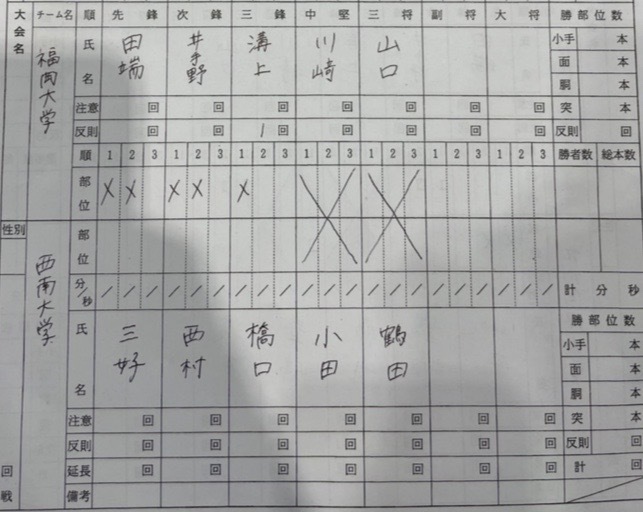 大会名 チーム名 順 先鋒 次鋒 三鋒 中堅 三将 副将 大将 勝部位数
福岡大学 氏名 田端 井手野 溝上 川崎 山口 小手 本
面 本
胴 本
注意 回 回 回 回 回 回 回 突 本
反則 回 回 1 回 回 回 回 回 反則 回
順 1 2 3 1 2 3 1 2 3 1 2 3 1 2 3 1 2 3 1 2 3 勝者数 総本数
部位 X X X X X
性別 西南大学 部位
分/秒 / / / / / / / / / / / / / / / / / / / / / 計 分 秒
氏名 三好 西村 橋口 小田 鶴田 勝部位数
小手 本
面 本
胴 本
注意 回 回 回 回 回 回 回 突 本
反則 回 回 回 回 回 回 回 反則 回
回 延長 回 回 回 回 回 回 回 計 回
戦 備考